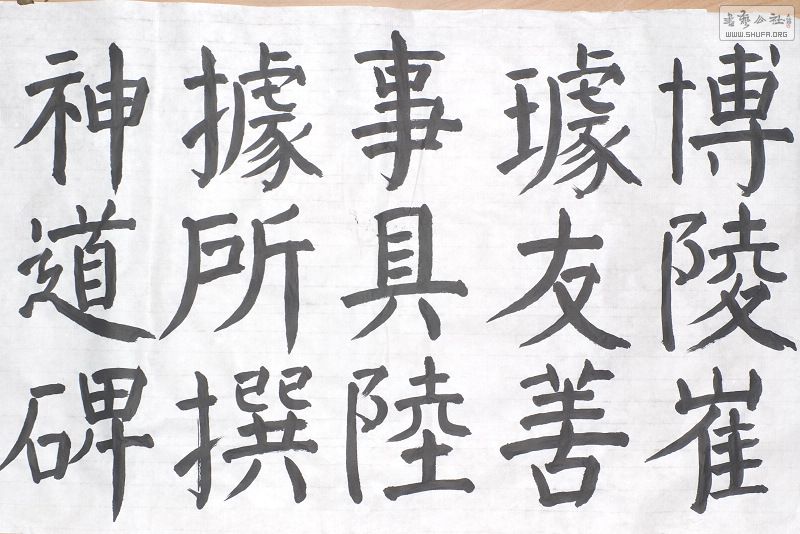 博陵崔
璩友善
事具陸
據所撰
神道碑
書藝公社
WWW.SHUFA.ORG